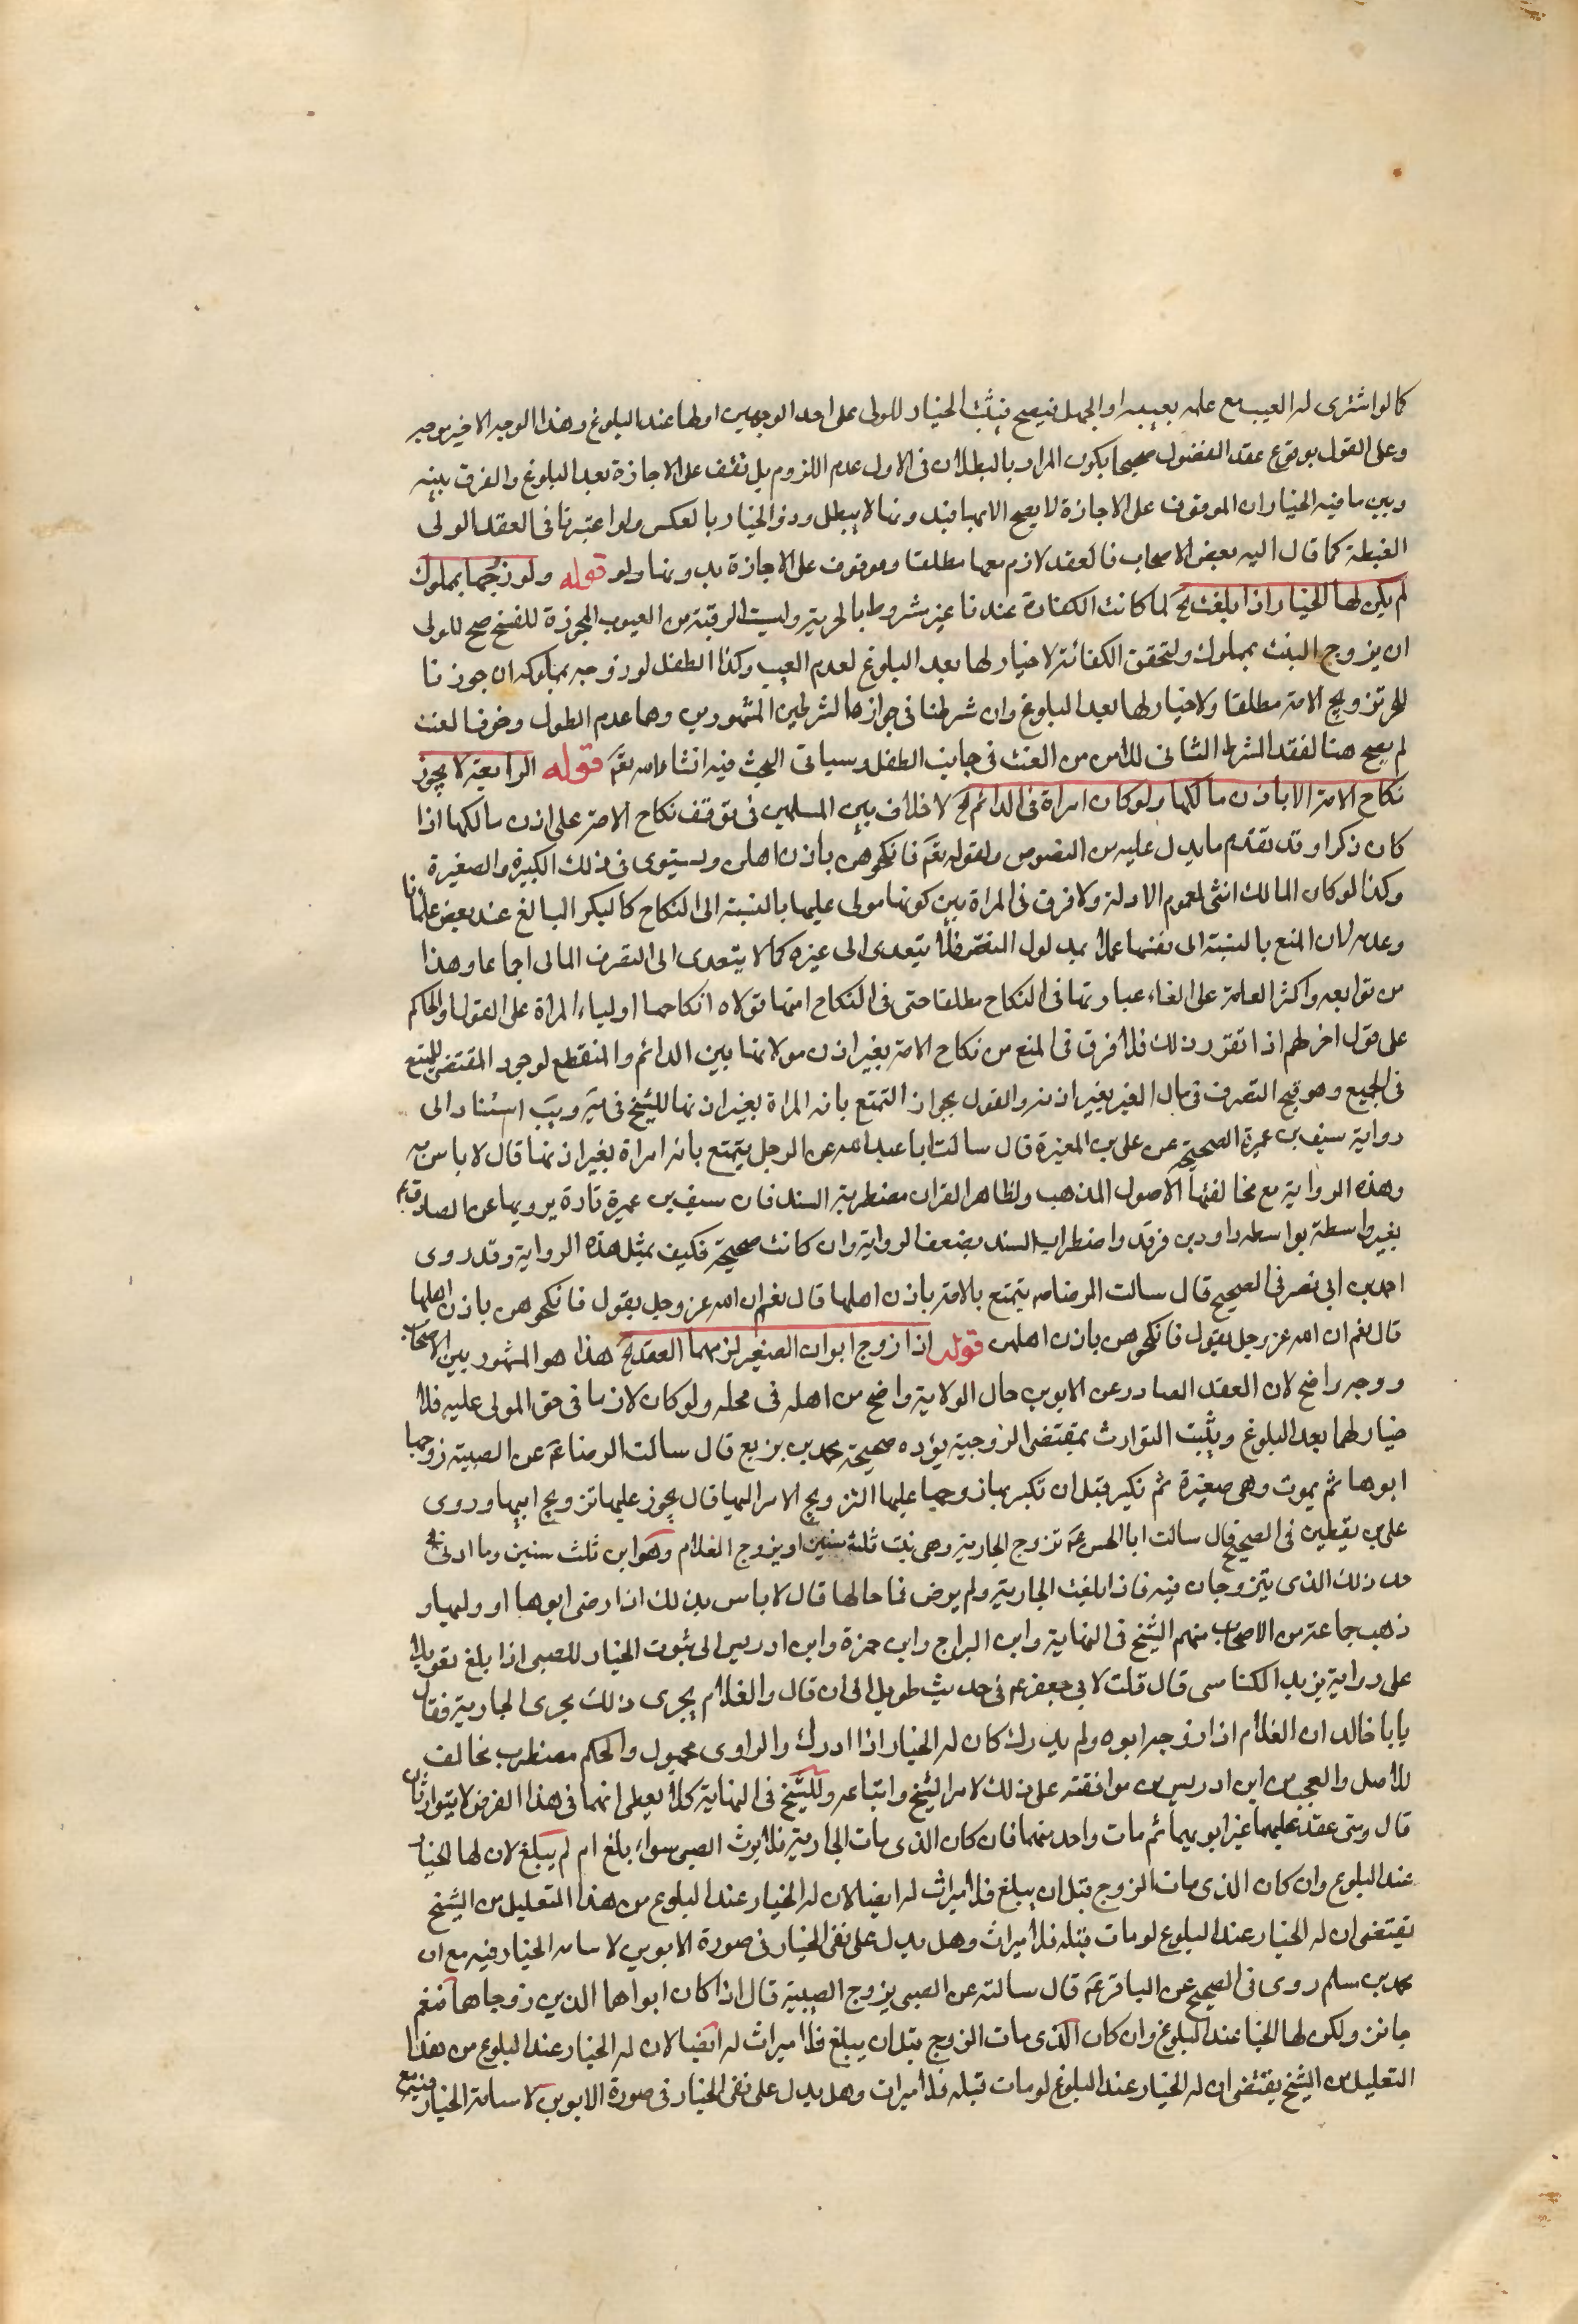 كما لو اشترى له العيب مع علمه بعيبه او الجهل فيصح فيثبت الخيار للولى على احد الوجهين او لها عند البلوغ وهذا الوجه الاخير موجه
وعلى القول بوقوع عقد الفضولى صحيحا يكون المراد بالبطلان فى الاول عدم اللزوم بل تقف على الاجازة بعد البلوغ والفرق بينه
وبين ما فيه الخيار ان الموقوف على الاجازة لا يصح الا بها فبدونها لا يبطل وذو الخيار بالعكس ولو اعتبرنا فى العقد الولى
الغبطة كما قال اليه بعض الاصحاب فالعقد لازم معها مطلقا وموقوف على الاجازة بدونها ولو قوله ولو زوجها بمملوك
لم يكن لها الخيار اذا بلغت الخ لما كانت الكفاءة عندنا غير مشروط بالحرية وليست الرقية من العيوب المجوزة للفسخ صح للولى
ان يزوج البنت بمملوك ولتحقق الكفائة لا خيار لها بعد البلوغ لعدم العيب وكذا الطفل لو زوجه بمملوكه ان جوزنا
للحر تزويج الامة مطلقا ولا خيار لها بعد البلوغ وان شرطنا فى جوازها الشرطين المشهورين وهما عدم الطول وخوف العنت
لم يصح هنا لفقد الشرط الثانى للامن من العنت فى جانب الطفل وسياتى البحث فيه انشاء الله تعَم قوله الرابعة لا يجوز
نكاح الامة الا باذن مالكها ولو كان امراة فى الدائم الخ لا خلاف بين المسلمين فى توقف نكاح الامة على اذن مالكها اذا
كان ذكرا وقد تقدم ما يدل عليه من النصوص ولقوله تعَم فانكحوهن باذن اهلهن ويستوى فى ذلك الكبيرة والصغيرة
وكذا لو كان المالك انثى لعموم الادلة ولا فرق فى المراة بين كونها مولى عليها بالنسبة الى النكاح كالبكر البالغ عند بعض علمائنا
وعدمه لان المنع بالنسبة الى نفسها عملا بمدلول النص فلا يتعدى الى غيره كما لا يتعدى الى التصرف المالى اجماعا وهذا
من توابعه واكثر العامة على الغاء عبارتها فى النكاح مطلقا حتى فى النكاح امتها تولاه انكاحها اولياء المراة على القول او الحاكم
على قول اخر لهم اذا تقرر ذلك فلا فرق فى المنع من نكاح الامة بغير اذن مولاتها بين الدائم والمنقطع لوجود المقتضى للمنع
فى الجميع وهو قبح التصرف فى مال الغير بغير اذنه والقول بجواز التمتع بامة المراة بغير اذنها للشيخ فى يَه ويَب استنادا الى
رواية سيف بن عميرة الصحيحة عن على بن المغيرة قال سالت ابا عبد الله عن الرجل يتمتع بامة امراة بغير اذنها قال لا باس به
وهذه الرواية مع مخالفتها الاصول المذهب ولظاهر القران مضطربة السند فان سيف بن عميرة تارة يرويها عن الصادق ع
بغير واسطة بواسطه داود بن فرقد واضطراب السند يضعف الرواية وان كانت صحيحة فكيف بمثل هذه الرواية وقد روى
احمد بن ابى نصر فى الصحيح قال سالت الرضا ه يتمتع بالامة باذن اهلها قال نعم ان الله عز وجل يقول فانكحوهن باذن اهلها
قال نعم ان الله عز وجل يقول فانكحوهن باذن اهلهن قوله اذا زوج ابوان الصغير لزمهما العقد الخ هذا هو المشهور بين الاصحاب
ووجه واضح لان العقد الصادر عن الابوين حال الولاية واضح من اهله فى محله ولو كان لازما فى حق المولى عليه فلا
خيار لهما بعد البلوغ ويثبت التوارث بمقتضى الزوجية يؤده صحيحة محمد بن بزيع قال سالت الرضا عَم عن الصبية زوجها
ابوها ثم يموت وهى صغيرة ثم تكبر قبل ان تكبر بها زوجها عليها التزويج الامر اليها قال يجوز عليها تزويج ابيها وروى
على بن يقطين فى الصحيح قال سالت ابا الحسن عَم تزوج الجارية وهى بنت ثلث سنين او يزوج الغلام وهو ابن ثلث سنين وما ادنى
حد ذلك الذى يتزوجان فيه فاذا بلغت الجارية ولم يرض فما حالها قال لا باس بذلك اذا رضى ابوها او وليها و
ذهب جماعة من الاصحاب منهم الشيخ فى النهاية وابن البراج وابن حمزة وابن ادريس الى ثبوت الخيار للصبى اذا بلغ تعويلا
على رواية يزيد الكناسى قال قلت لابى جعفر ع فى حديث طويل الى ان قال والغلام يجرى ذلك مجرى الجارية فقال
يا با خالد ان الغلام اذا زوجه ابوه ولم يدرك كان له الخيار اذا ادرك والراوى مجهول والحكم مضطرب مخالف
للاصل والعجب من ابن ادريس من موافقته على ذلك لامر الشيخ واتباعه وللشيخ فى النهاية كلا يعطى انهما فى هذا الفرض لا يتوارثان
قال ومتى عقد عليهما غير ابويهما ثم مات واحد منهما فان كان الذى مات الجارية فلا يرث الصبى سواء بلغ ام لم يبلغ لان لها الخيار
عند البلوغ وان كان الذى مات الزوج قبل ان يبلغ فلا ميراث له ايضا لان له الخيار عند البلوغ من هذا التعليل من الشيخ
يقتضى ان له الخيار عند البلوغ لو مات قبله فلا ميراث وهل يدل على نفى الخيار فى صورة الابوين لا سامه الخيار فيه مع ان
محمد بن مسلم روى فى الصحيح عن الباقر عَم قال سالته عن الصبى يزوج الصبية قال اذا كان ابواهما الذين زوجاهما فنعم
جائز ولكن لها الخيا عند البلوغ وان كان الذى مات الزوج قبل ان يبلغ فلا ميراث له ايضا لان له الخيار عند البلوغ من هذا
التعليل من الشيخ يقتضى ان له الخيار عند البلوغ لو مات قبله فلا ميراث وهل يدل على نفى الخيار فى صورة الابوين لا سامة الخيار فيه مع